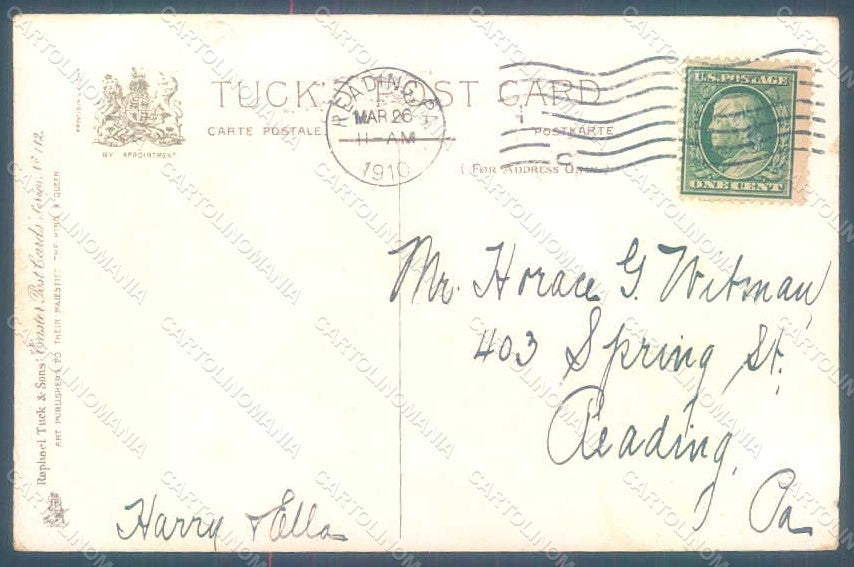 TUCK'S POST CARD
CARTE POSTALE
POSTKARTE
(FOR ADDRESS ONLY)
BY APPOINTMENT
READING, PA.
MAR 26
11-AM
1910
U.S. POSTAGE
ONE CENT
Mr. Horace G. Witman,
403 Spring St.
Reading,
Pa
Harry & Ella
Raphael Tuck & Sons' "Easter Post Cards" Series Nº 112.
ART PUBLISHERS TO THEIR MAJESTIES THE KING & QUEEN
CARTOLINOMANIA